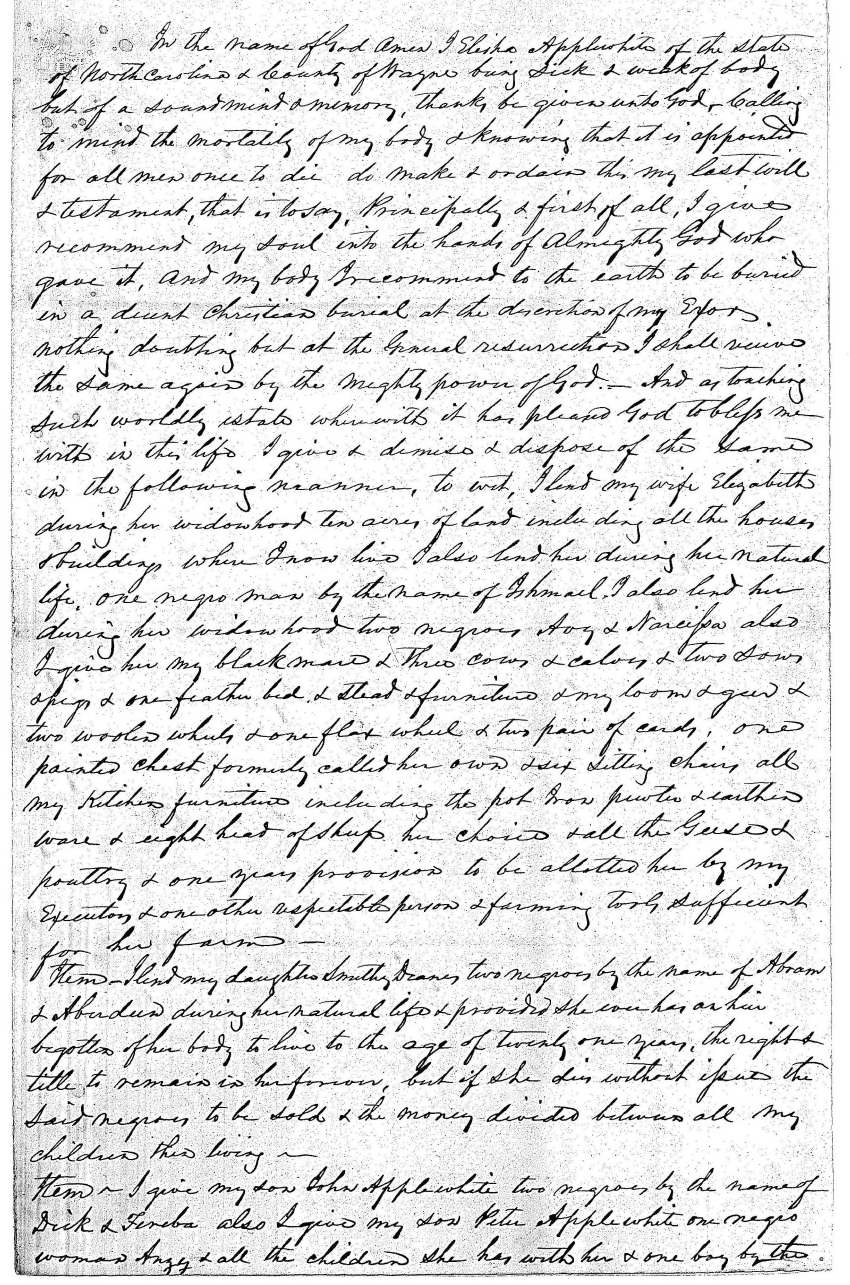 In the name of God Amen I Elisha Applewhite of the State
of North carolina & County of Wayne being Sick & weak of body
but of a sound mind & memory, thanks be given unto God, Calling
to mind the mortality of my body & knowing that it is appointed
for all men once to die do make & ordain this my last will
& testament, that is to say, Principally & first of all, I give
recommend my soul into the hands of Almighty God who
gave it, And my body I recommend to the earth to be buried
in a decent Christian burial at the discretion of my Exors
nothing doubting but at the General resurrection I shall receive
the same again by the mighty power of God. — And as touching
such worldly estate wherewith it has pleased God to bless me
with in this life I give & demise & dispose of the same
in the following manner, to wit, I lend my wife Elizabeth
during her widowhood ten acres of land including all the houses
& buildings where I now live I also lend her during her natural
life, one negro man by the name of Ishmael. I also lend her
during her widowhood two negroes Avy & Narcissa also
I give her my black mare & three cows & calves & two sows
& pigs & one feather bed & stead & furniture & my loom & geer &
two woolen wheels & one flax wheel & two pair of cards, one
painted chest formerly called her own & six sitting chairs all
my Kitchen furniture including the pot Iron pewter & earthen
ware & eight head of sheep her choice & all the Geese &
poultry & one years provision to be allotted her by my
Executors & one other respectable person & farming tools sufficient
for her farm —
Item – I lend my daughter Smithy Deanes two negroes by the name of Abram
& Aberdeen during her natural life & provided she ever has an heir
begotten of her body to live to the age of twenty one years, the right &
title to remain in her forever, but if she dies without issue the
said negroes to be sold & the money divided between all my
children then living ~
Item ~ I give my son John Applewhite two negroes by the name of
Dick & Fereba also I give my son Peter Applewhite one negro
woman Angy & all the children she has with her & one boy by the